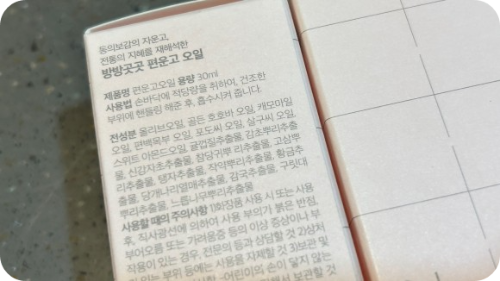 동의보감의 자운고,
전통의 지혜를 재해석한
방방곳곳 편운고 오일
제품명 편운고오일 용량 30ml
사용법 손바닥에 적당량을 취하여, 건조한
부위에 핸들링 해준 후, 흡수시켜 줍니다.
전성분 올리브오일, 골든 호호바 오일, 캐모마일
오일, 편백목부 오일, 포도씨 오일, 살구씨 오일,
스위트 아몬드오일, 귤껍질추출물, 감초뿌리추출
물, 신감채추출물, 참당귀뿌리추출물, 고삼뿌
리추출물, 탱자추출물, 작약뿌리추출물, 황금추
출물, 당개나리열매추출물, 감국추출물, 구릿대
뿌리추출물, 느릅나무뿌리추출물
사용할 때의 주의사항 1)화장품 사용 시 또는 사용
후, 직사광선에 의하여 사용 부위가 붉은 반점,
부어오름 또는 가려움증 등의 이상 증상이나 부
작용이 있는 경우, 전문의 등과 상담할 것 2)상처
가 있는 부위 등에는 사용을 자제할 것 3)보관 및
어린이의 손이 닿지 않는
보관할 것